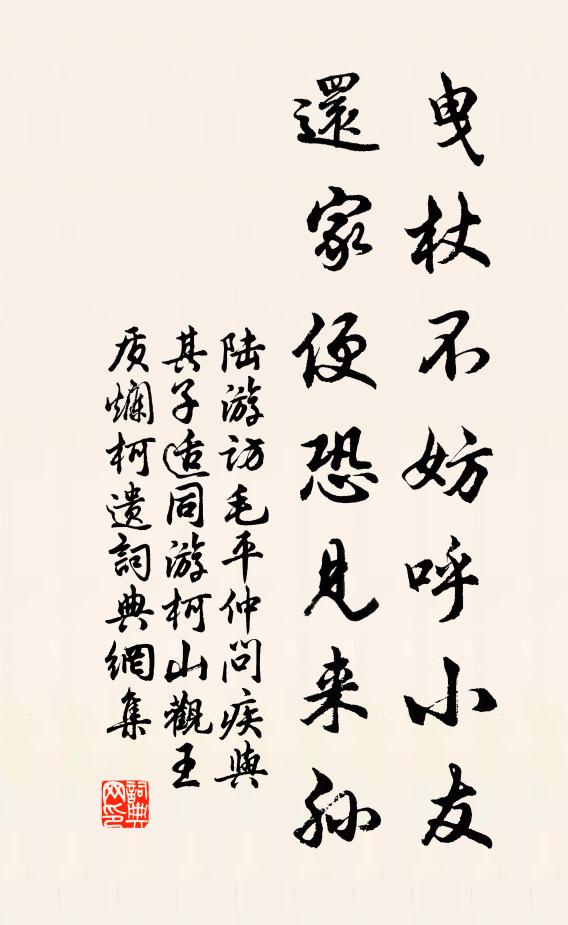 曳杖不妨呼小友
還家便恐見来孙
陆游访毛平仲问疾與
其子适同游柯山觀王
质爛柯遗詞典網集
詞典网印